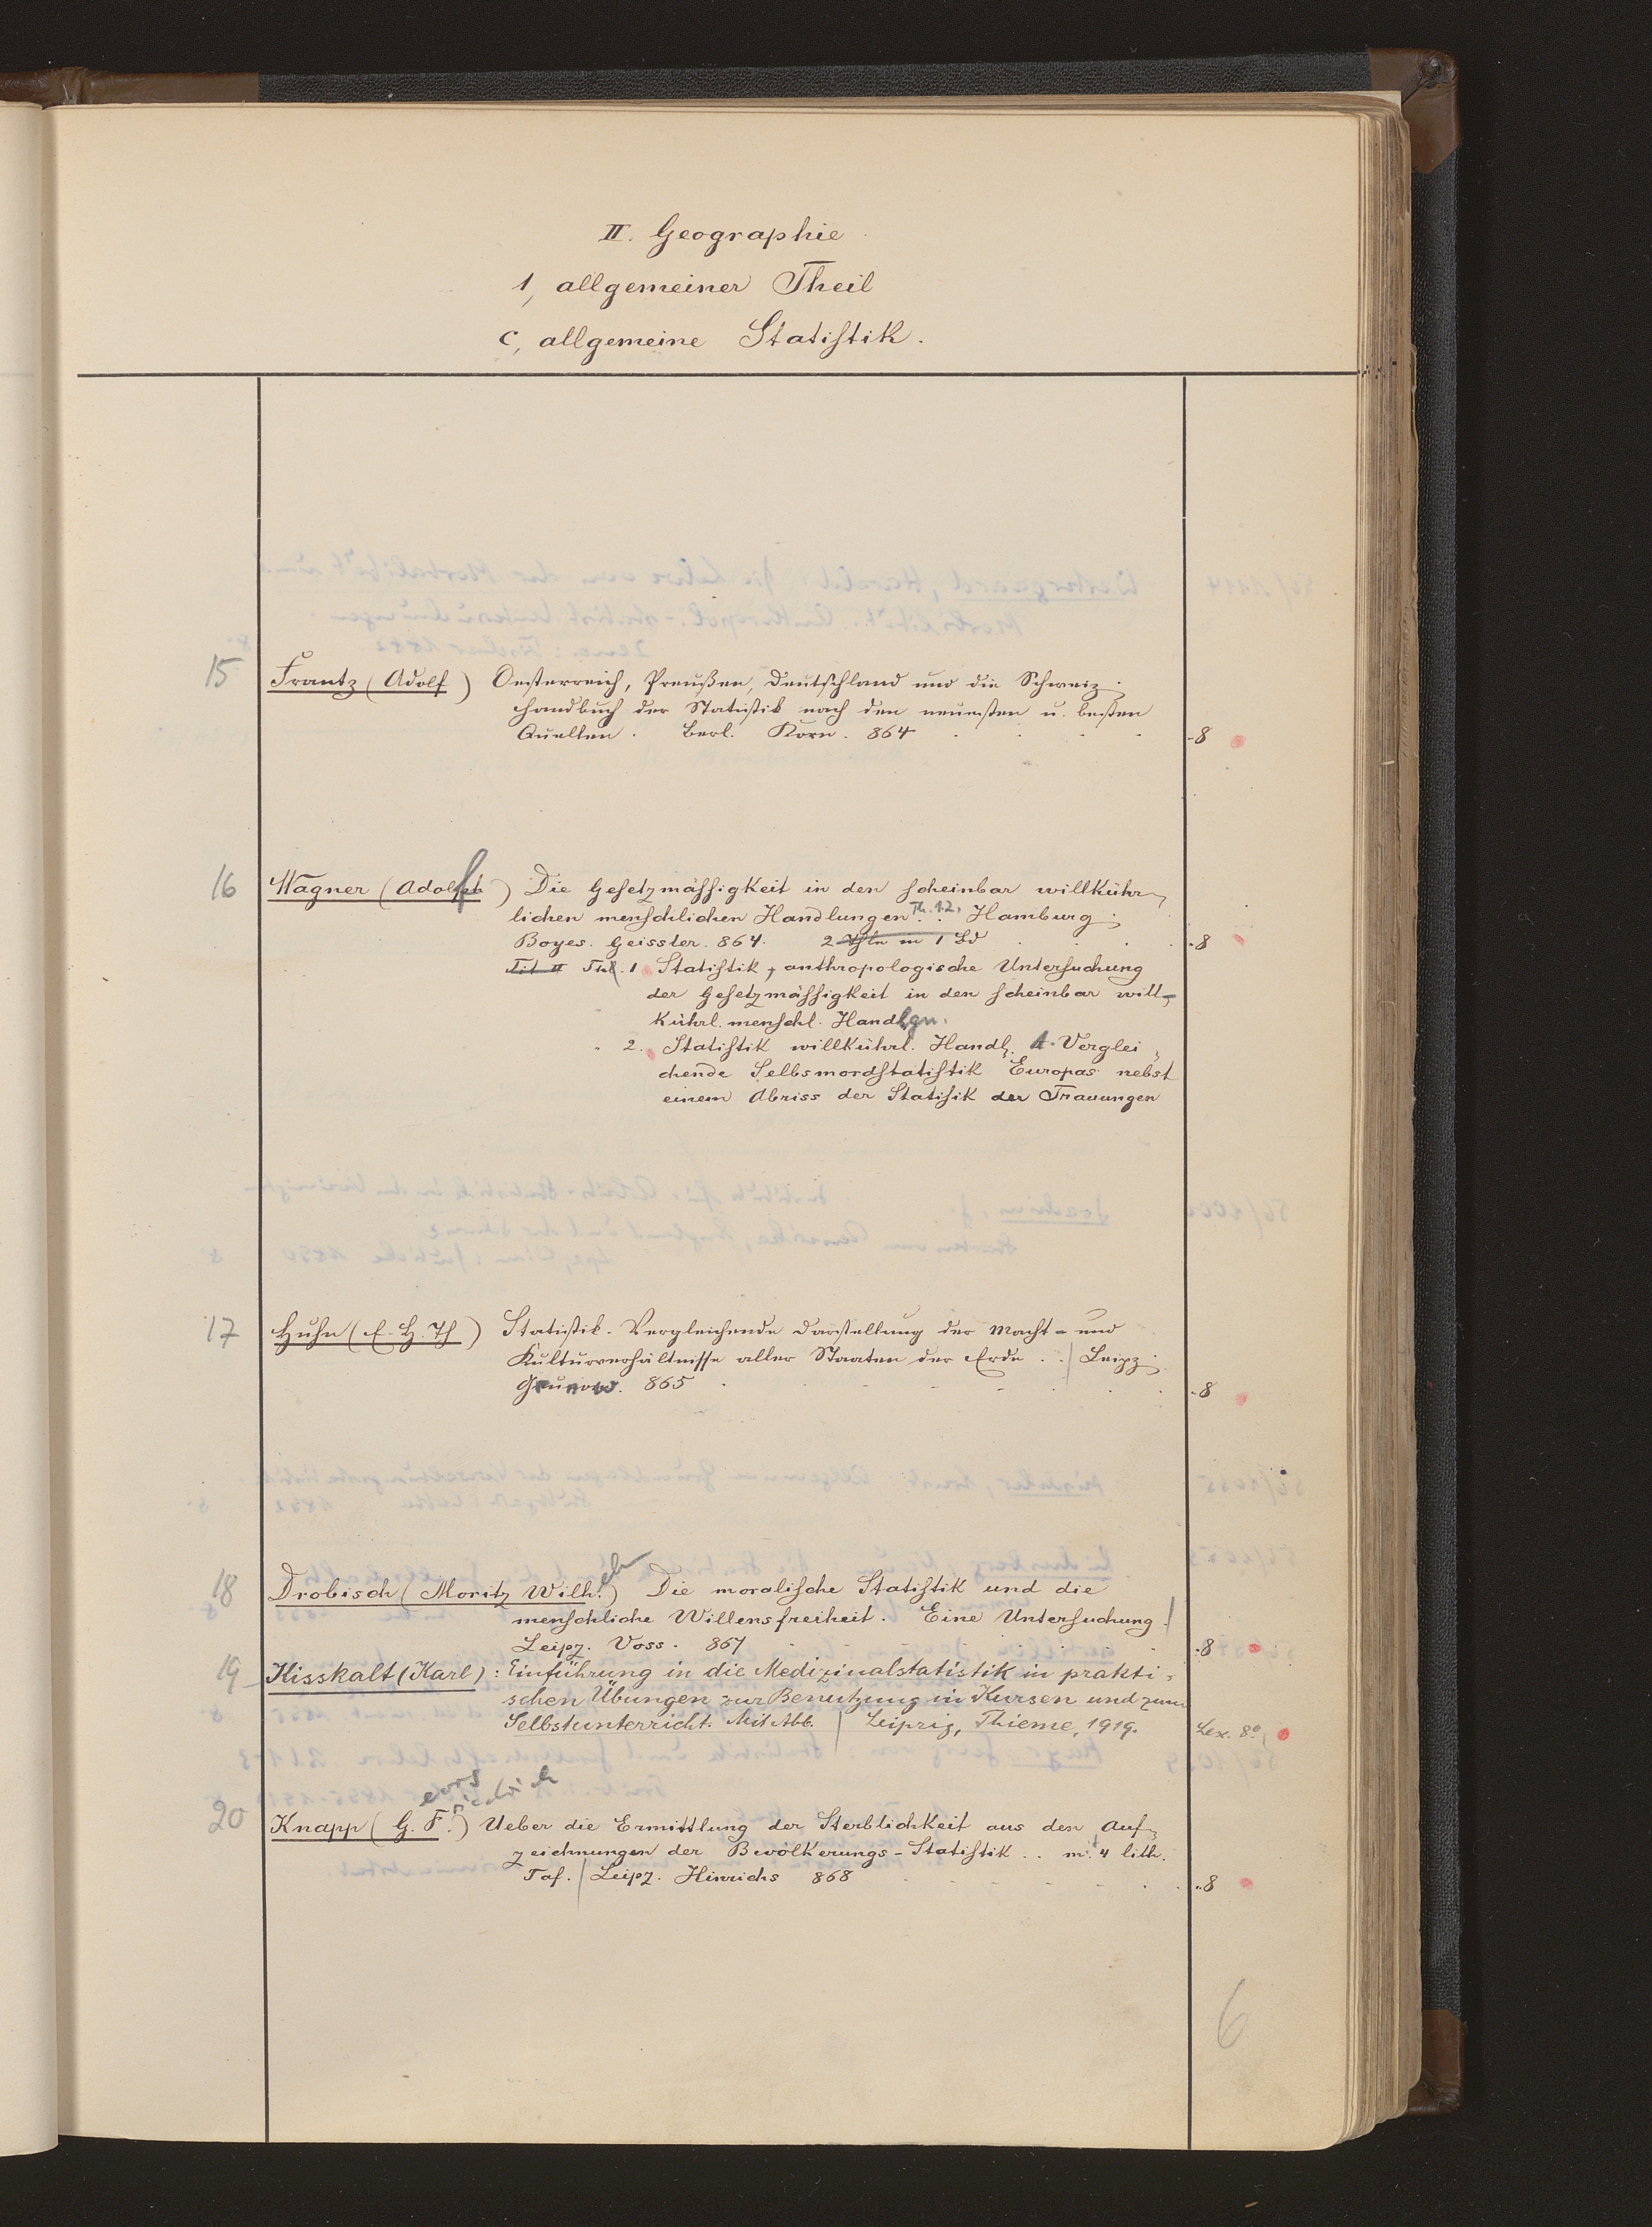 II. Geographie
1, allgemeiner Theil
c, allgemeine Statistik.
15 Frantz (Adolf) Oesterreich, Preußen, Deutschland und die Schweiz;
Handbuch der Statistik nach den neuesten u. besten
Quellen. Berl. Korn. 864 - 8
16 Wagner (Adolf) Die Gesetzmässigkeit in den scheinbar willkühr-
lichen menschlichen Handlungen Th. 1.2. Hamburg;
Boyes. Geissler. 864. 2 Thle in 1 Bd - 8
Tit II Thl. 1 Statistik, anthropologische Untersuchung
der Gesetzmässigkeit in den scheinbar will-
kührl. menschl. Handlgn.
" 2. Statistik willkührl. Handl. 1. Verglei-
chende Selbsmordstatistik Europas nebst
einem Abriss der Statisik der Trauungen
17 Huhn (E. H. Th) Statistik. Vergleichende Darstellung der Macht- und
Kulturverhältnisse aller Staaten der Erde . . | Leipz;
Grunow. 865 - 8
18 Drobisch (Moritz Wilhelm) Die moralische Statistik und die
menschliche Willensfreiheit. Eine Untersuchung. |
Leipz. Voss. 867 - 8
19 Kisskalt (Karl): Einführung in die Medizinalstatistik in prakti-
schen Übungen zur Benutzung in Kursen und zum
Selbstunterricht. Mit Abb. | Leipzig, Thieme, 1919. Lex. 8°,
eorg riedrich
20 Knapp (G. F.) Ueber die Ermittlung der Sterblichkeit aus den Auf-
zeichnungen der Bevölkerungs-Statistik . . m. 4 lith.
Taf. | Leipz. Hinrichs 868 " 8
6